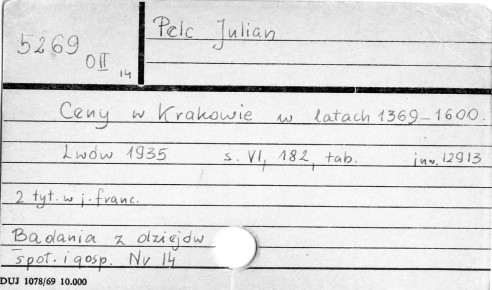 Pelc Julian
5269
O II
14
Ceny w Krakowie w latach 1369-1600.
Lwów 1935 s. VI, 182, tab. inv. 12913
2 tyt. w j. franc.
Badania z dziejów
społ. i gosp. Nr 14
DUJ 1078/69 10.000